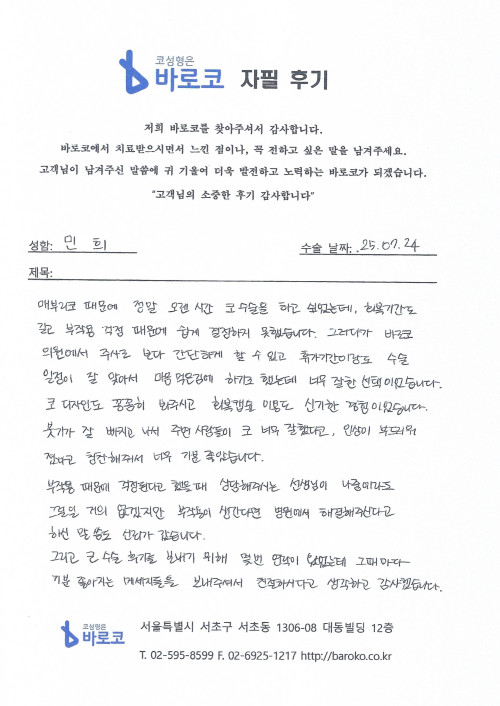 코성형은
바로코 자필 후기
저희 바로코를 찾아주셔서 감사합니다.
바로코에서 치료받으시면서 느낀 점이나, 꼭 전하고 싶은 말을 남겨주세요.
고객님이 남겨주신 말씀에 귀 기울여 더욱 발전하고 노력하는 바로코가 되겠습니다.
"고객님의 소중한 후기 감사합니다"
성함: 민 희
수술 날짜: .25.07.24
제목:
매부리코 때문에 정말 오랜 시간 코 수술을 하고 싶었는데, 회복기간도
길고 부작용 걱정 때문에 쉽게 결정하지 못했습니다. 그러다가 바로코
의원에서 주사로 보다 간단하게 할 수 있고 휴가기간이랑도 수술
일정이 잘 맞아서 마음 먹은김에 하기로 했는데 너무 잘한 선택이었습니다.
코 디자인도 꼼꼼히 봐주시고 회복캡슐 이용도 신기한 경험이었습니다.
붓기가 잘 빠지고 나서 주변 사람들이 코 너무 잘했다고, 인상이 부드러워
졌다고 칭찬해줘서 너무 기분 좋았습니다.
부작용 때문에 걱정된다고 했을 때 상담해주시는 선생님이 나중이라도
그럴일 거의 없겠지만 부작용이 생긴다면 병원에서 해결해주신다고
하신 말씀도 신뢰가 갔습니다.
그리고 코 수술 후기를 보내기 위해 몇번 연락이 있었는데 그때마다
기분 좋아지는 메세지들을 보내주셔서 친절하시다고 생각하고 감사했습니다.
코성형은
바로코
서울특별시 서초구 서초동 1306-08 대동빌딩 12층
T. 02-595-8599 F. 02-6925-1217 http://baroko.co.kr